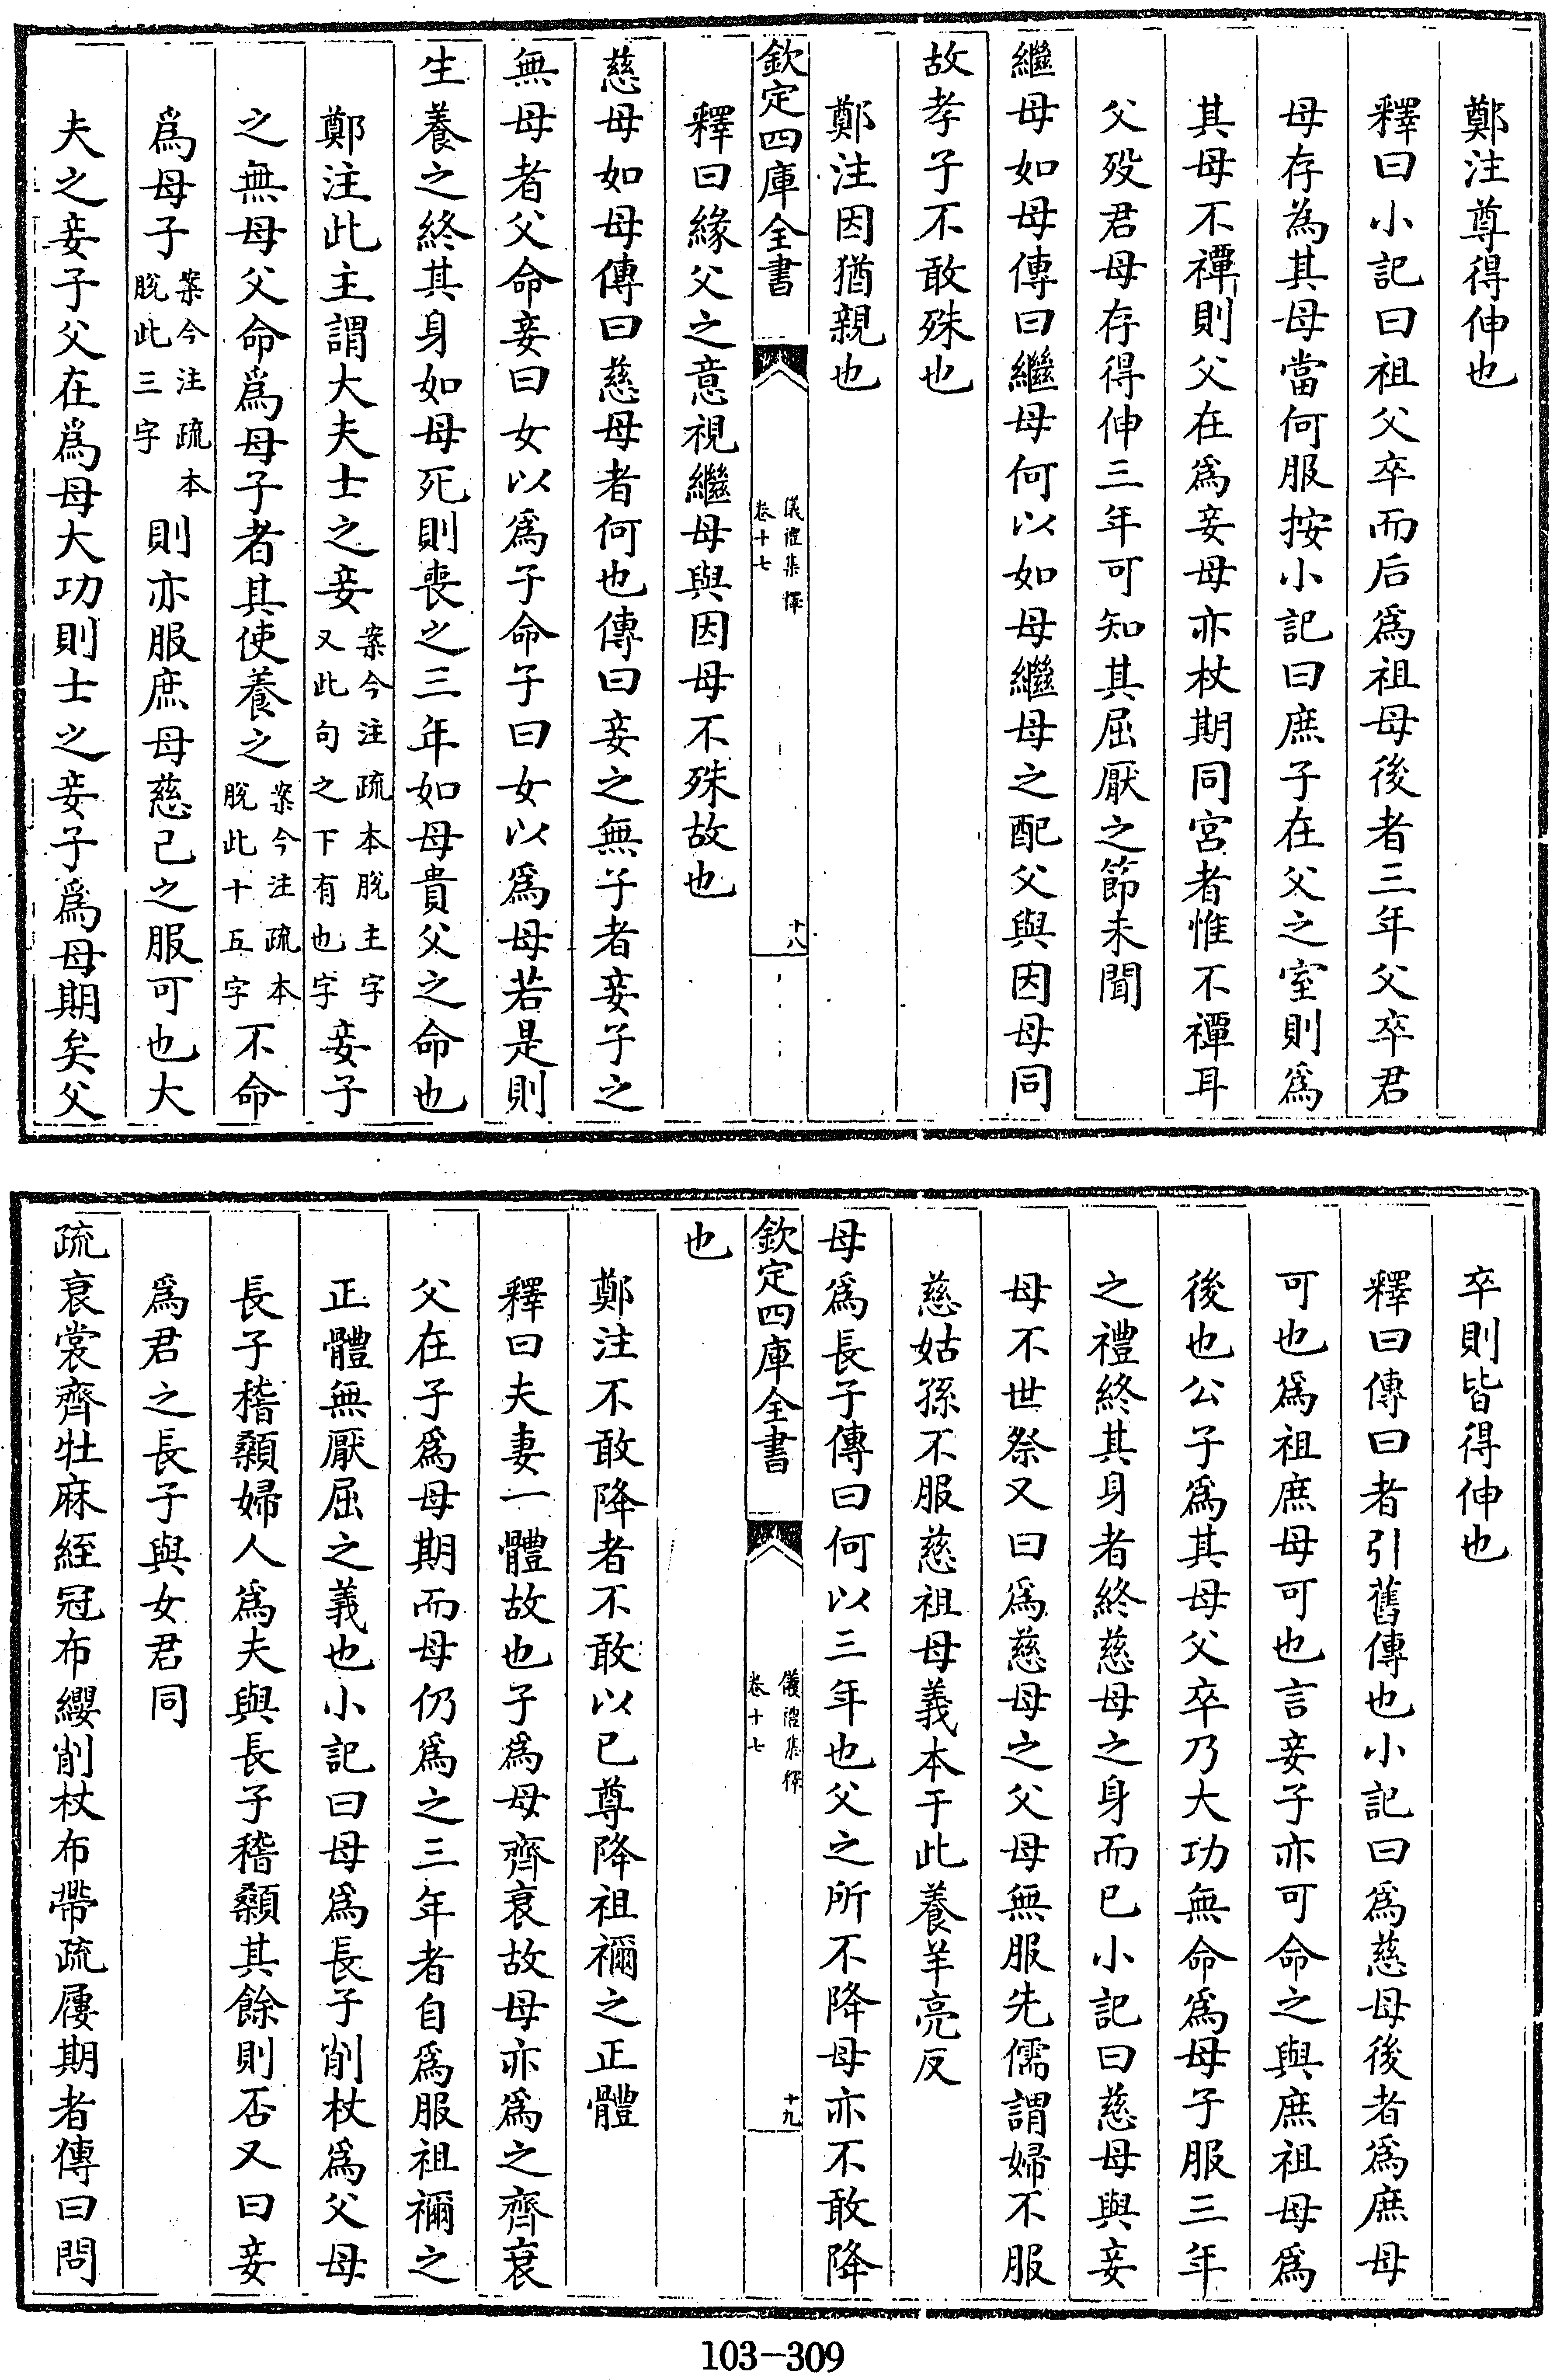 鄭注尊得伸也
釋曰小記曰祖父卒而后爲祖母後者三年父卒君
母存為其母當何服按小記曰庶子在父之室則爲
其母不禫則父在爲妾母亦杖期同宮者惟不禫耳
父殁君母存得伸三年可知其屈厭之節未聞
繼母如母傳曰繼母何以如母繼母之配父與因母同
故孝子不敢殊也
鄭注因猶親也
欽定四庫全書
儀禮集釋
卷十七
十八
釋曰緣父之意視繼母與因母不殊故也
慈母如母傳曰慈母者何也傳曰妾之無子者妾子之
無母者父命妾曰女以爲子命子曰女以爲母若是則
生養之終其身如母死則喪之三年如母貴父之命也
鄭注此主謂大夫士之妾案今注疏本脫主字又此句之下有也字妾子
之無母父命爲母子者其使養之案今注疏本脫此十五字不命
爲母子案今注疏本脫此三字則亦服庶母慈己之服可也大
夫之妾子父在爲母大功則士之妾子爲母期矣父
卒則皆得伸也
釋曰傳曰者引舊傳也小記曰爲慈母後者爲庶母
可也爲祖庶母可也言妾子亦可命之與庶祖母爲
後也公子爲其母父卒乃大功無命爲母子服三年
之禮終其身者終慈母之身而已小記曰慈母與妾
母不世祭又曰爲慈母之父母無服先儒謂婦不服
慈姑孫不服慈祖母義本于此養羊亮反
母爲長子傳曰何以三年也父之所不降母亦不敢降
欽定四庫全書
儀禮集釋
卷十七
十九
也
鄭注不敢降者不敢以已尊降祖禰之正體
釋曰夫妻一體故也子爲母齊衰故母亦爲之齊衰
父在子爲母期而母仍爲之三年者自爲服祖禰之
正體無厭屈之義也小記曰母爲長子削杖爲父母
長子稽顙婦人爲夫與長子稽顙其餘則否又曰妾
爲君之長子與女君同
疏衰裳齊牡麻絰冠布纓削杖布帶疏屨期者傳曰問
103-309